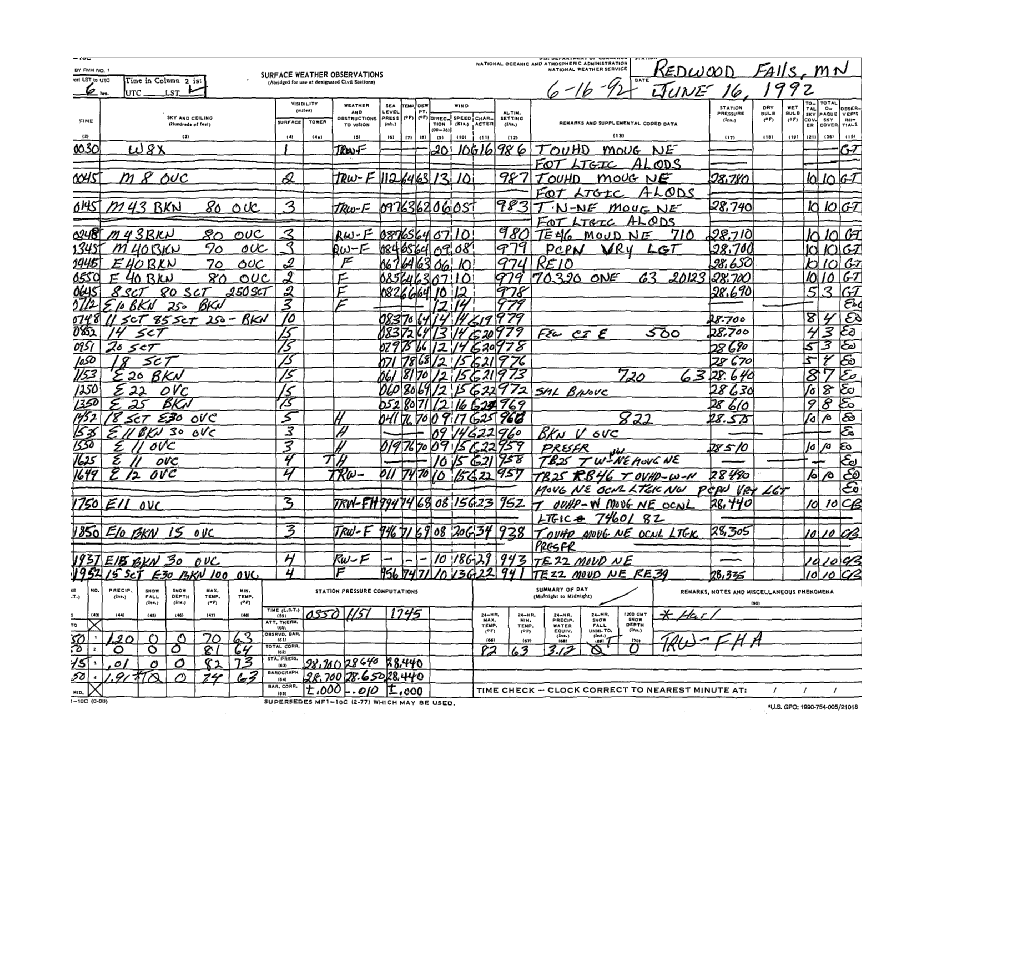 NATIONAL OCEANIC AND ATMOSPHERIC ADMINISTRATION
NATIONAL WEATHER SERVICE
REDWOOD FALLS, MN
SURFACE WEATHER OBSERVATIONS
(Abridged for use at designated Civil Stations)
Time in Column 2 is:
UTC LST
6
6-16-92 DATE JUNE 16, 1992
TIME SKY AND CEILING (Hundreds of feet) VISIBILITY (miles) SURFACE TOWER WEATHER AND OBSTRUCTIONS TO VISION SEA LEVEL PRESS WIND DIRECTION SPEED CHARACTER ALTIM. SETTING (Ins.) REMARKS AND SUPPLEMENTAL CODED DATA STATION PRESSURE (Ins.) DRY BULB (°F) WET BULB (°F) TOTAL SKY COVER TOTAL OPAQUE SKY COVER OBSERVER'S INITIALS
0030 W8X 1 TRW-F 20 10G16 986 TOUHD MOUG NE GT
FQT LTGIC ALQDS
0045 M 8 OVC 2 TRW-F 112 64 63 13 10 987 TOUHD MOUG NE 28.780 10 10 GT
FQT LTGIC ALQDS
0145 M 43 BKN 80 OVC 3 TRW-F 097 63 62 06 05 983 T N-NE MOUG NE 28.740 10 10 GT
FQT LTGIC ALQDS
M 43 BKN 80 OVC 3 RW-F 65 64 07 10 980 TE46 MOUD NE 710 28.710 10 10 GT
M 40 BKN 70 OVC 3 RW-F 084 65 64 09 08 979 PCPN VRY LGT 28.700 10 10 GT
E 40 BKN 70 OVC 2 F 067 64 63 06 10 974 RE10 28.650 10 10 GT
0550 E 40 BKN 80 OVC 2 F 64 63 07 10 979 70320 ONE 63 20123 28.700 10 10 GT
0645 8 SCT 80 SCT 250 SCT 2 F 082 66 64 10 12 978 28.690 5 3 GT
0712 E10 BKN 250 BKN 3 F 12 14 979
0748 11 SCT 85 SCT 250-BKN 10 083 70 64 14 14 G19 979 28.700 8 4 EO
0852 14 SCT 15 083 72 64 13 14 G20 979 FEW CI E 500 28.700 4 3 EO
0951 20 SCT 15 079 75 66 12 14 G20 978 28.690 5 3 EO
1050 18 SCT 15 071 78 68 12 15 G21 976 28.670 5 4 EO
1153 E 20 BKN 15 061 81 70 12 15 G21 973 720 63 28.640 8 7 EO
1250 E 22 OVC 15 060 80 69 12 15 G22 972 SML BNOVC 28.630 10 8 EO
1350 E 25 BKN 15 052 80 71 12 16 969 28.610 9 8 EO
1452 18 SCT E30 OVC 5 H 041 76 70 09 17 G25 822 10 10 EO
E 11 BKN 30 OVC 3 H 09 14 G22 960 BKN V OVC EO
1550 E 11 OVC 3 H 019 76 70 09 15 G22 959 PRESFR 28.510 10 10 EO
1625 E 11 OVC 4 TH 10 15 G21 958 TB25 T W-NE MOVG NE EO
1649 E 12 OVC 4 TRW- 011 74 70 10 15 G22 957 TB25 RB46 T OUHD-W-N 28.480 10 10 EO
MOUG NE OCNL LTGIC NW PCPN VRY LGT EO
1750 E11 OVC 3 TRW-FH 994 74 68 08 15G23 952 T OUHD-W MOUG NE OCNL 28.440 10 10 CB
LTGIC 74601 82
1850 E10 BKN 15 OVC 3 TRW-F 946 71 69 08 20G34 938 TOUHD MOUG NE OCNL LTGIC 28.305 10 10 CB
PRESFR
1937 E15 BKN 30 OVC 4 RW-F - - 10 18G29 943 TE22 MOUD NE 10 10 CB
1952 15 SCT E30 BKN 100 OVC 4 F 956 74 71 10 13G22 941 TE22 MOUD NE RE39 28.335 10 10 CB
NO. PRECIP. (Ins.) SNOW FALL (Ins.) SNOW DEPTH (Ins.) MAX. TEMP. (°F) MIN. TEMP. (°F)
1.20 0 0 70 63
0 0 0 81 64
.01 0 0 82 73
1.91 0 74 63
STATION PRESSURE COMPUTATIONS
TIME (L.S.T.) 0550 1151 1745
ATT. THERM.
OBSERVD. BAR.
TOTAL CORR.
STA. PRESS. 28.700 28.640 28.440
BAROGRAPH 28.700 28.650 28.440
BAR. CORR. ±.000 -.010 ±.000
SUMMARY OF DAY
(Midnight to Midnight)
24-HR. MAX. TEMP. (°F) 24-HR. MIN. TEMP. (°F) 24-HR. PRECIP. WATER EQUIV. (Ins.) 24-HR. SNOW FALL UNMLTD. (Ins.) 1200 GMT SNOW DEPTH (Ins.)
82 63 3.12 0
REMARKS, NOTES AND MISCELLANEOUS PHENOMENA
* Hail
TRW-FHA
TIME CHECK — CLOCK CORRECT TO NEAREST MINUTE AT: / / /
SUPERSEDES MF1-10C (2-77) WHICH MAY BE USED.
*U.S. GPO: 1990-754-005/21018